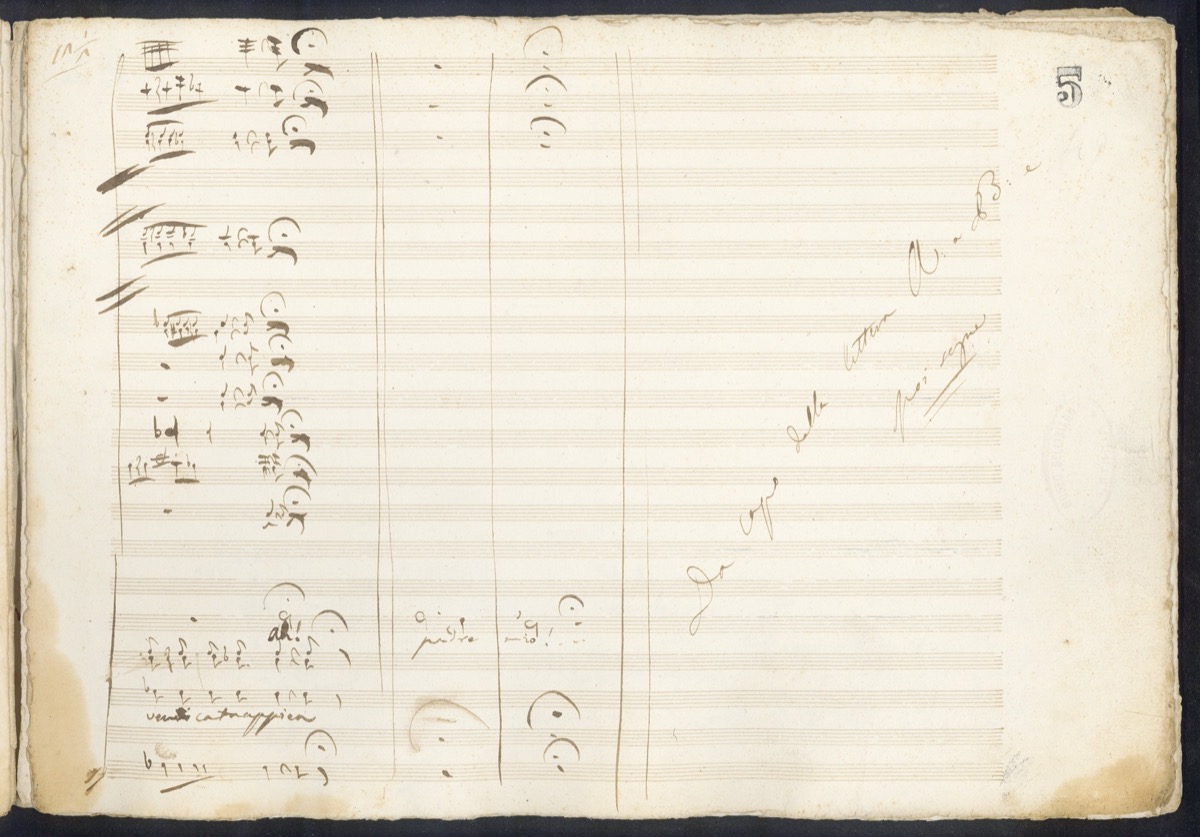 5
ah!
padre
mio!
vendicata appien
Da capo dalla lettera A: a B: e
poi segue